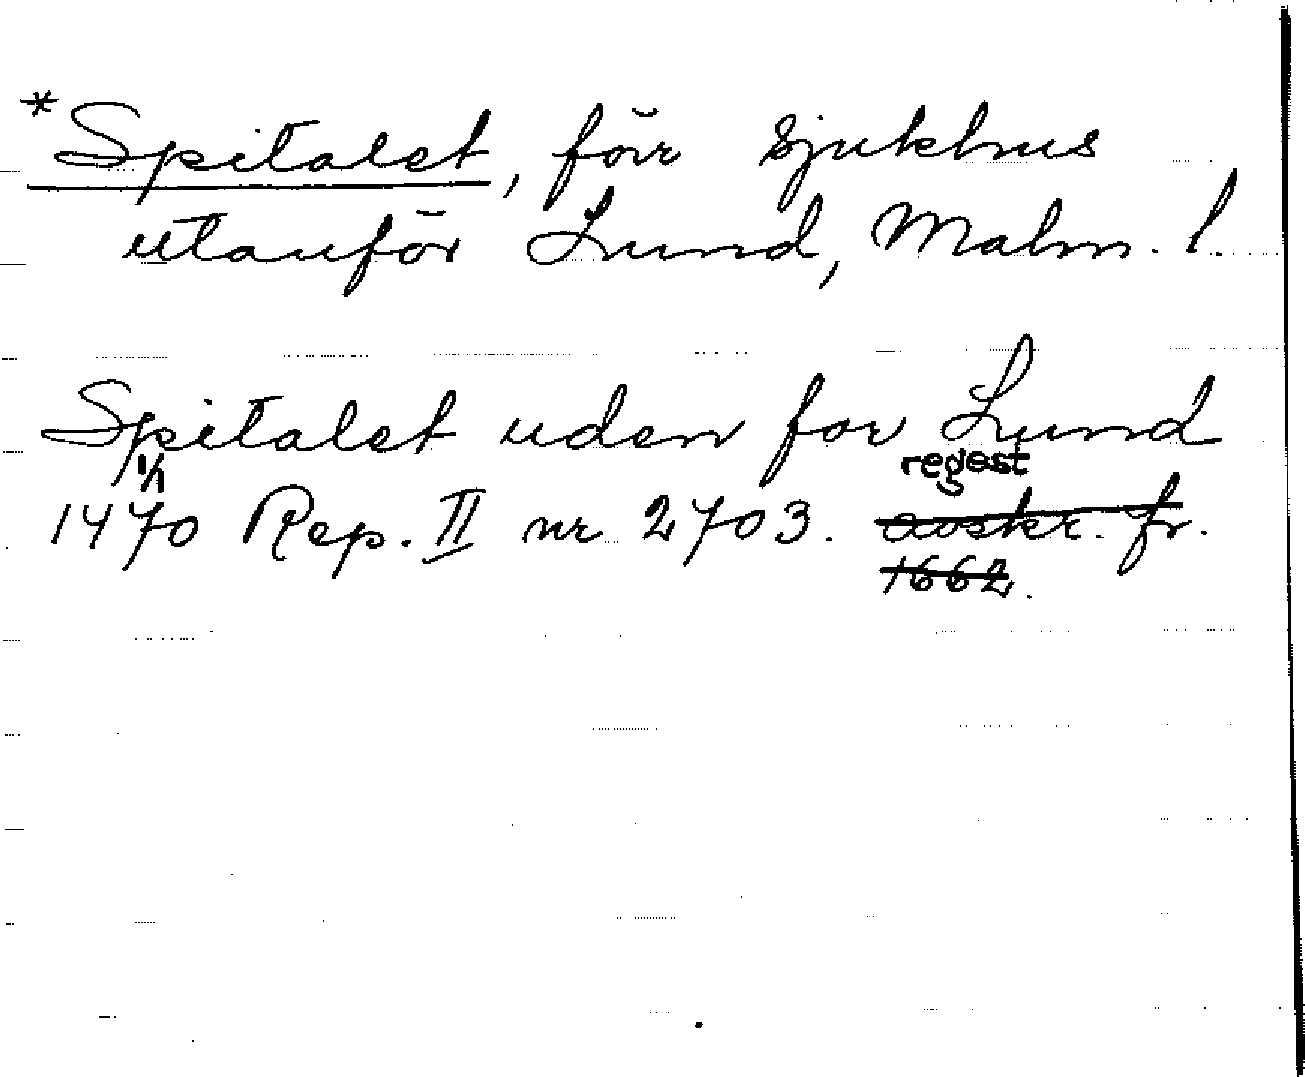 *Spitalet, förr sjukhus
utanför Lund, Malm. l.
Spitalet uden for Lund
1/1 regest
1470 Rep. II nr 2703. avskr. fr.
1662.